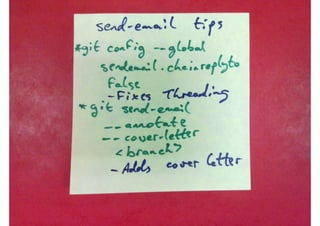 send-email tips
*git config --global
sendemail.chainreplyto
false
- Fixes Threading
* git send-email
--annotate
--cover-letter
<branch>
- Adds cover letter